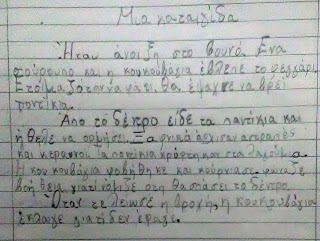 Μια καταιγίδα
Ήταν άνοιξη στο βουνό. Ένα
σούρουπο και η κουκουβάγια έβλεπε το φεγγάρι.
Ετοιμαζόταν να φάτι. Θα έψαχνε να βρεί
ποντίκια.
Από το δέντρο είδε τα ποντίκια και
ήθελε να ορμήσει. Ξαφνικά άρχισαν αστραπές
και κεραυνοί. Τα ποντίκια κρύφτηκαν στα
Η κουκουβάγια φοβήθηκε και κούρνιασε. φώναζε
βοή θεια γιατί νόμιζε ότι θα σπάσει το δέντρο.
Όταν τελείωσε η βροχή, η κουκουβάγια
έκλαιγε γιατί δεν έφαγε.